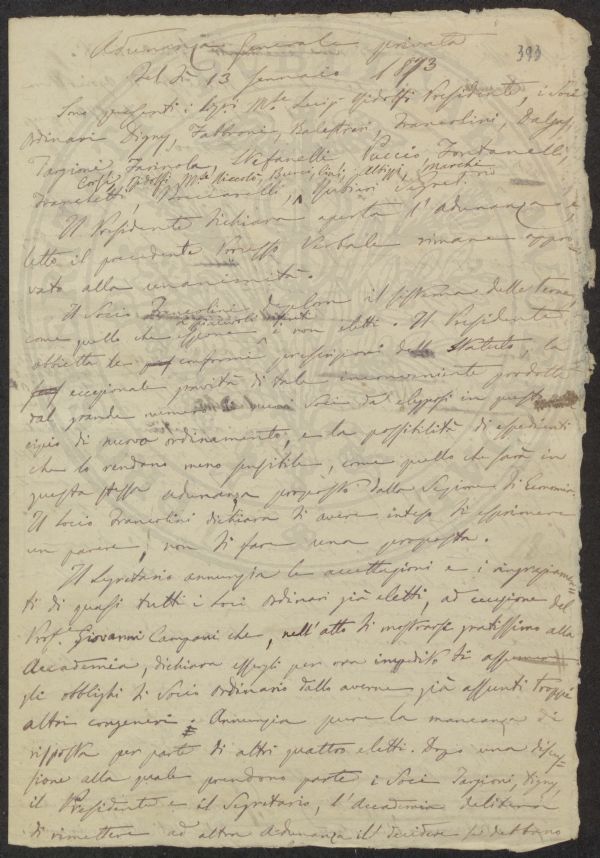 393
Adunanza Generale privata
del dì 13 Gennaio 1873
Sono presenti i Sigri Mse Luigi Ridolfi Presidente, i Soci
Ordinari Digny, Fabbroni, Balestrieri, Francolini, Dalgas,
Targioni, Farinola, Stefanelli Puccio, Fontanelli,
Corsi, Ridolfi Mse Niccolò, Albizzi, Marchi
Franchetti, Vannuccini Segret.rio
Il Presidente dichiara aperta l'adunanza e
letto il precedente Processo Verbale rimane appro
vato alla unanimità.
Il Socio Francolini deplora il sistema delle terne,
come quello che i non eletti. Il Presidente
obbietta le conformi prescrizioni dello Statuto, la
eccezionale gravità di tale inconveniente prodotta
dal grande numero di nuovi Soci da eleggersi in questo
cipio di nuovo ordinamento, e la possibilità di espedienti
che lo rendano meno sensibile, come quello che sarà in
questa stessa adunanza proposto dalla Sezione di Economia.
Il Socio Francolini dichiara di avere inteso di esprimere
un parere, non di fare una proposta.
Il Segretario annunzia le accettazioni e i ringraziamen=
ti di quasi tutti i Soci Ordinari già eletti, ad eccezione del
Prof.e Giovanni Campani che, nell'atto di mostrarsi gratissimo alla
Accademia, dichiara essergli per ora impedito di assumere
gli obblighi di Socio ordinario dallo averne già assunti troppi
altri congeneri. Annunzia pure la mancanza di
risposta per parte di altri quattro eletti. Dopo una discus=
sione alla quale prendono parte i Soci Targioni, Digny,
il Presidente e il Segretario, l'Accademia delibera
di rimettere ad altra Adunanza il decidere se debbano